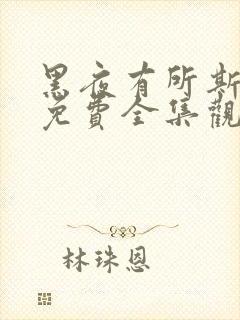 黑夜有所斯
免費全集觀
林珠恩